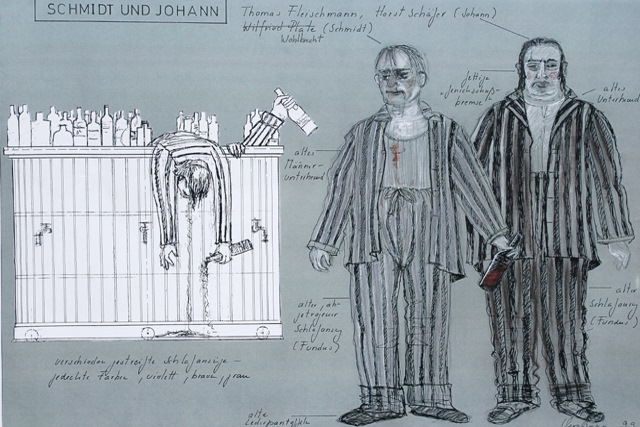 SCHMIDT UND JOHANN
Thomas Fleischmann, Horst Schäfer (Johann)
Wilfried Plate (Schmidt)
Wohlbrecht
fettige
altes
Unterhemd
altes
Männer-
unterhemd
alter, ab-
getragener
Schlafanzug
(Fundus)
alter
Schlafanzug
(Fundus)
verschieden gestreifte Schlafanzüge –
gedeckte Farben, violett, braun, grau
alte
Lederpantoffeln
99